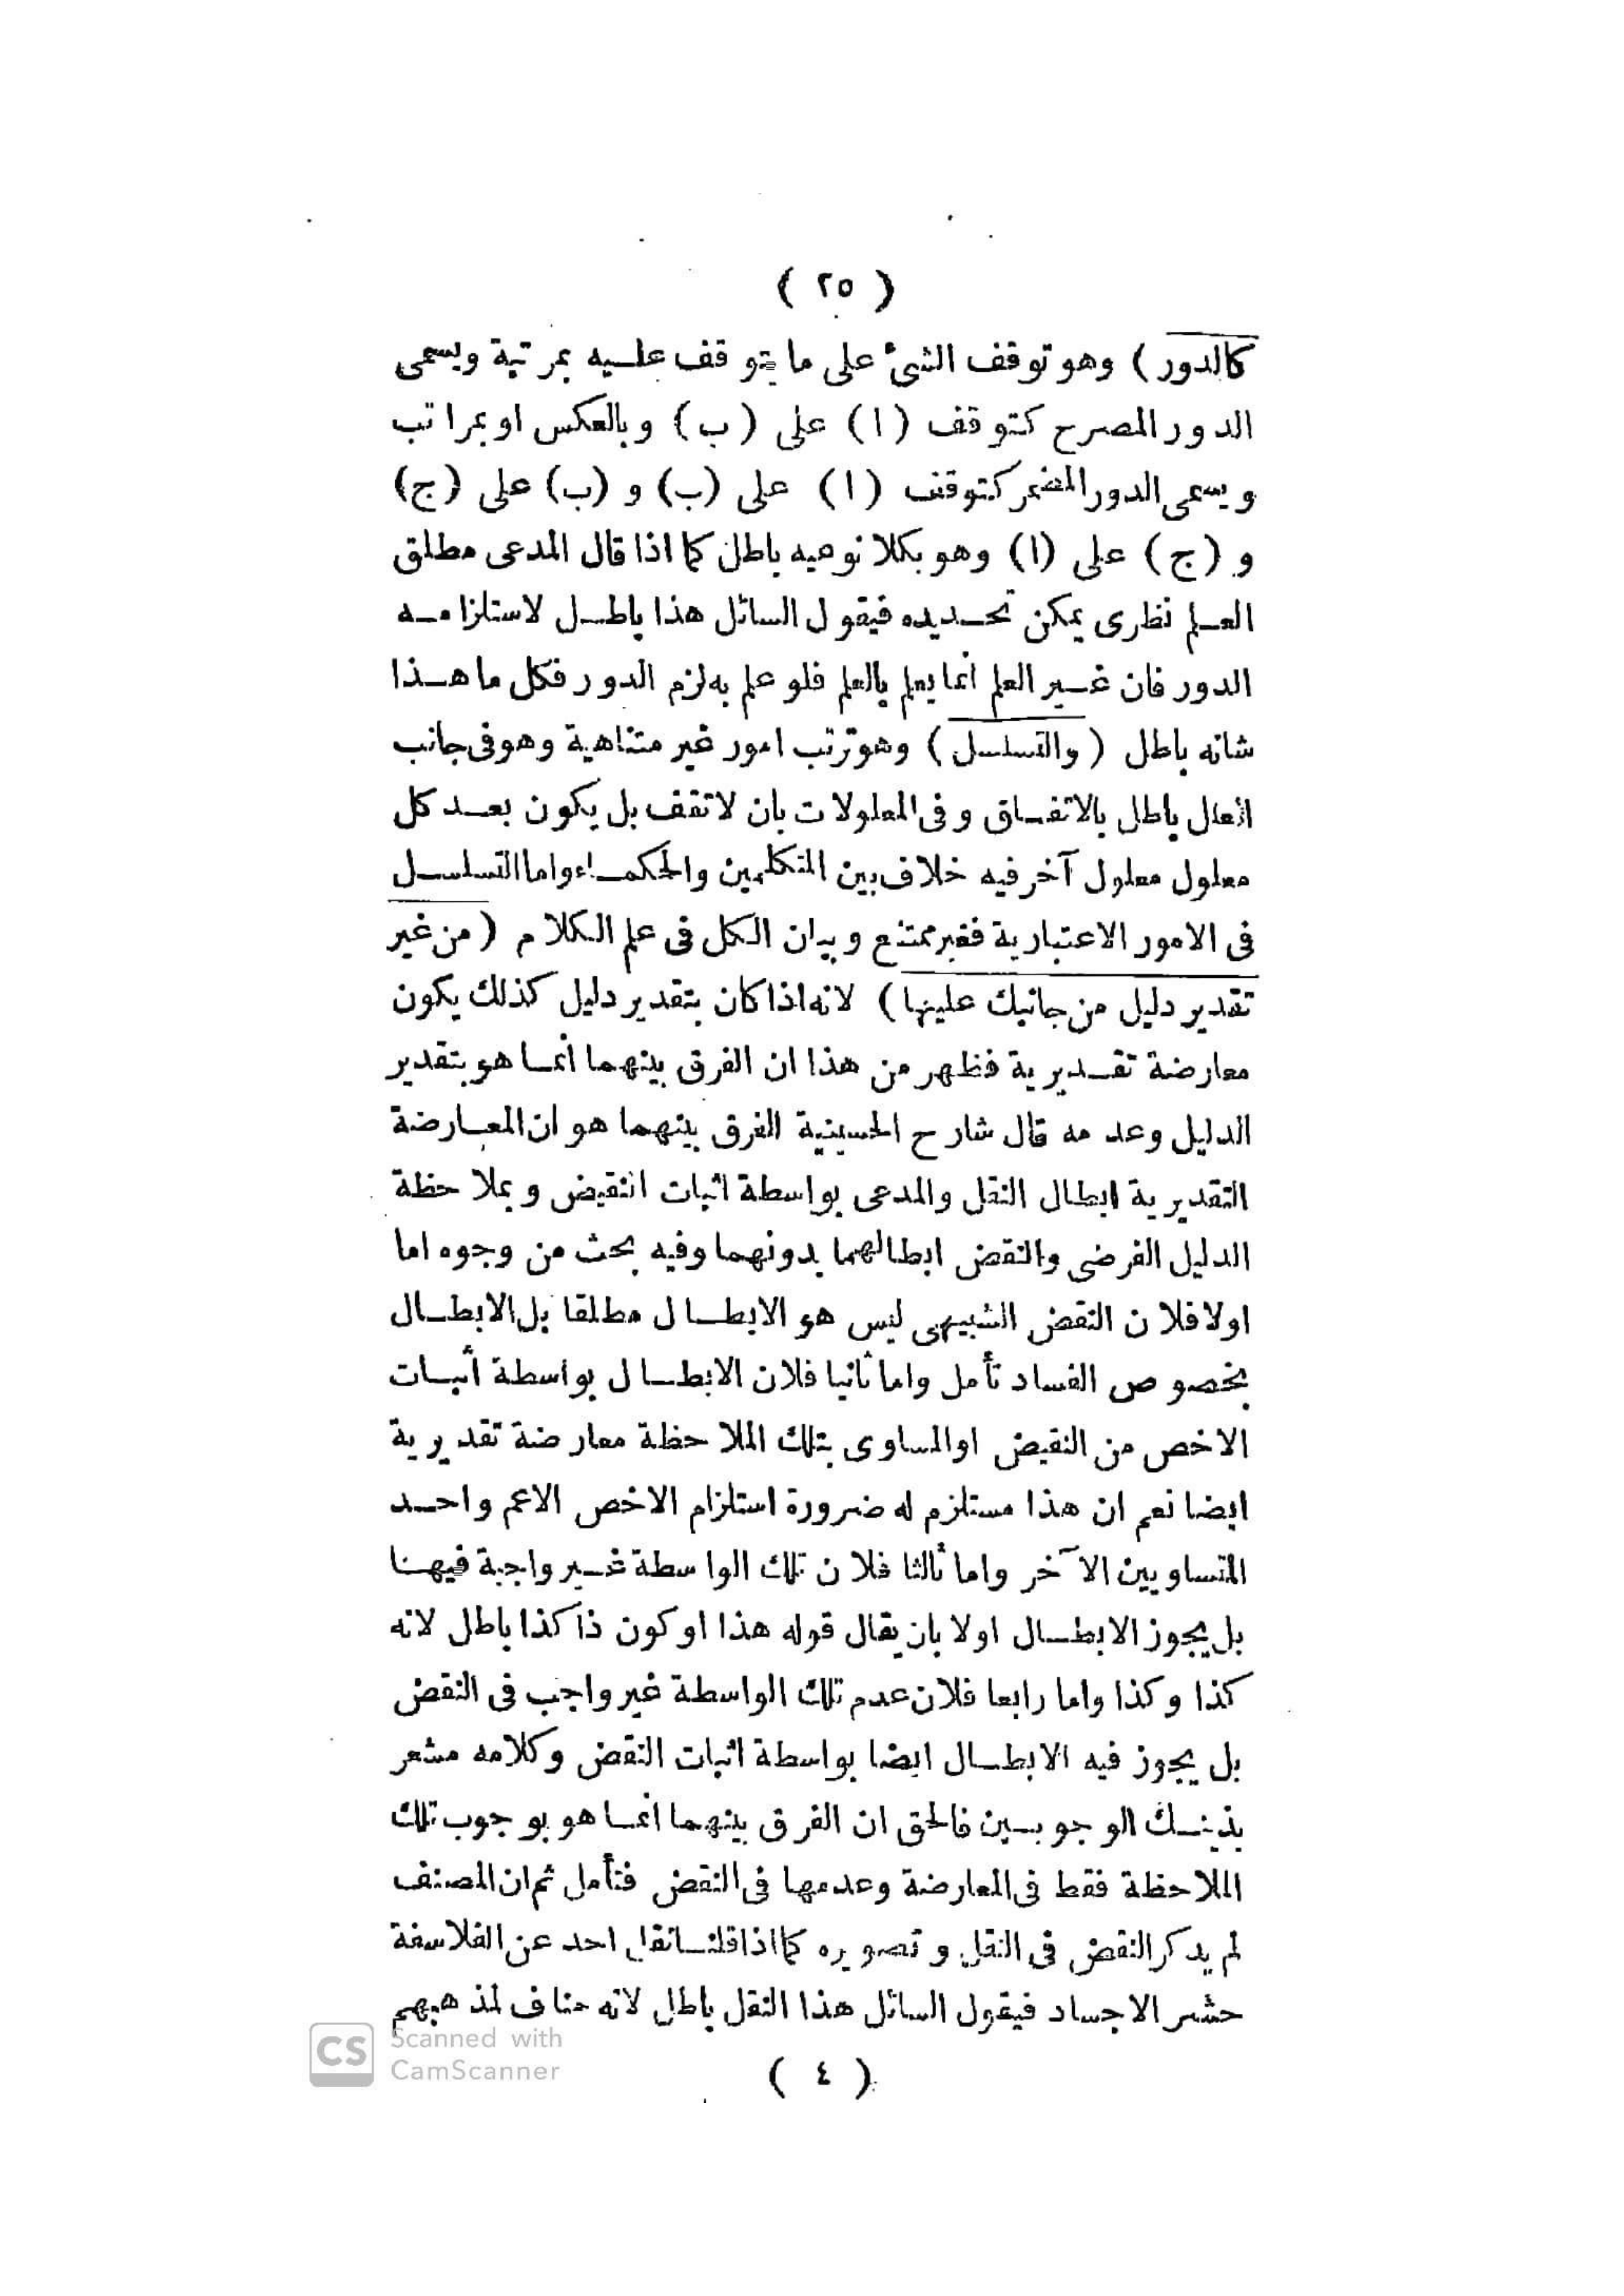 ( ٢٥ )
كالدور ) وهو توقف الشئ على ما يتوقف عليه بمرتبة ويسمى
الدور المصرح كتوقف ( ا ) على ( ب ) وبالعكس او بمراتب
ويسمى الدور المضمر كتوقف ( ا ) على ( ب ) و ( ب ) على ( ج )
و ( ج ) على ( ا ) وهو بكلا نوعيه باطل كما اذا قال المدعى مطلق
العلم نظرى يمكن تحديده فيقول السائل هذا باطل لاستلزامه
الدور فان غير العلم انما يعلم بالعلم فلو علم به لزم الدور فكل ما هذا
شانه باطل ( والتسلسل ) وهو ترتب امور غير متناهية وهو فى جانب
العلل باطل بالاتفاق وفى المعلولات بان لا تقف بل يكون بعد كل
معلول معلول آخر فيه خلاف بين المتكلمين والحكماء واما التسلسل
فى الامور الاعتبارية فغير ممتنع وبيان الكل فى علم الكلام ( من غير
تقدير دليل من جانبك عليها ) لانه اذا كان بتقدير دليل كذلك يكون
معارضة تقديرية فظهر من هذا ان الفرق بينهما انما هو بتقدير
الدليل وعدمه قال شارح الحسينية الفرق بينهما هو ان المعارضة
التقديرية ابطال النقل والمدعى بواسطة اثبات النقيض وبملاحظة
الدليل الفرضى والنقض ابطالهما بدونهما وفيه بحث من وجوه اما
اولا فلان النقض الشبيهى ليس هو الابطال مطلقا بل الابطال
بخصوص الفساد تأمل واما ثانيا فلان الابطال بواسطة اثبات
الاخص من النقيض او المساوى بتلك الملاحظة معارضة تقديرية
ايضا نعم ان هذا مستلزم له ضرورة استلزام الاخص الاعم واحد
المتساويين الآخر واما ثالثا فلان تلك الواسطة غير واجبة فيهنا
بل يجوز الابطال اولا بان يقال قوله هذا او كون ذا كذا باطل لانه
كذا وكذا واما رابعا فلان عدم تلك الواسطة غير واجب فى النقض
بل يجوز فيه الابطال ايضا بواسطة اثبات النقض وكلامه مشعر
بذينك الوجوبين فالحق ان الفرق بينهما انما هو بوجوب تلك
الملاحظة فقط فى المعارضة وعدمها فى النقض فتأمل ثم ان المصنف
لم يذكر النقض فى النقل وتصويره كما اذا قلنا نقل احد عن الفلاسفة
حشر الاجساد فيقول السائل هذا النقل باطل لانه مناف لمذهبهم
( ٤ )
CS Scanned with
CamScanner